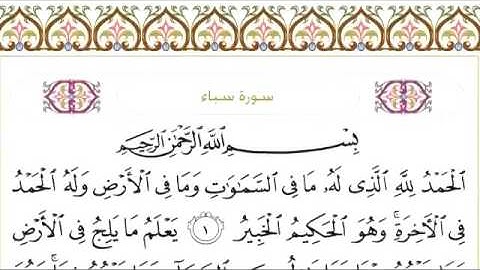 سورة سباء
بِسْمِ اللَّهِ الرَّحْمَٰنِ الرَّحِيمِ
الْحَمْدُ لِلَّهِ الَّذِي لَهُ مَا فِي السَّمَاوَاتِ وَمَا فِي الْأَرْضِ وَلَهُ الْحَمْدُ
فِي الْآخِرَةِ ۚ وَهُوَ الْحَكِيمُ الْخَبِيرُ ١ يَعْلَمُ مَا يَلِجُ فِي الْأَرْضِ